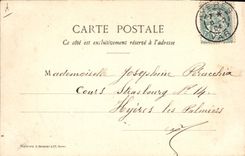 CARTE POSTALE
Ce côté est exclusivement réservé à l'adresse
VAR
Mademoiselle Josephine
Cours Strasbourg N: 14
Hyères les Palmiers